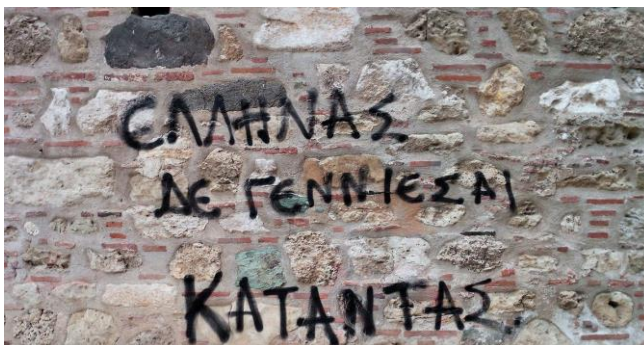 ΕΛΛΗΝΑΣ
ΔΕ ΓΕΝΝΙΕΣΑΙ
ΚΑΤΑΝΤΑΣ.